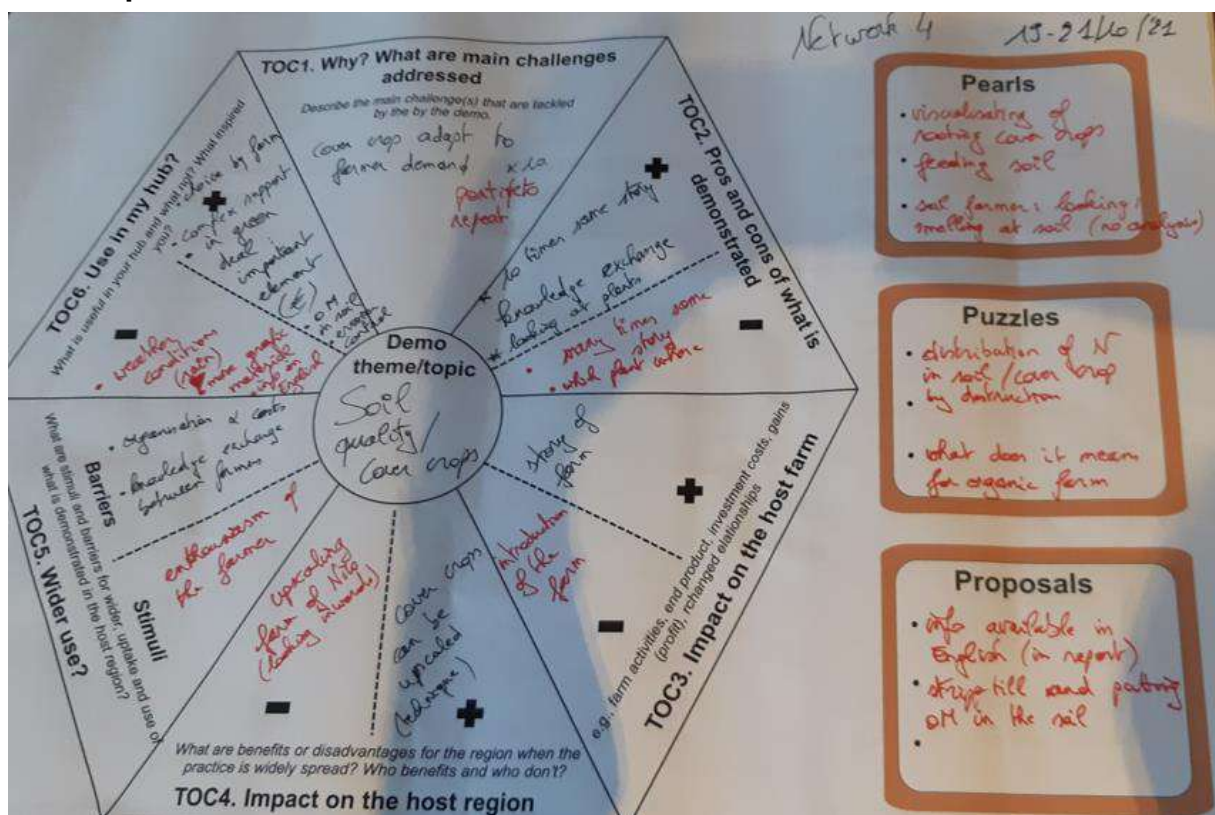 Network 4
19-21/10/21
TOC1. Why? What are main challenges
addressed
Describe the main challenge(s) that are tackled
by the by the demo.
cover crop adapt to
farmer demand
x 10
repeat
TOC2. Pros and cons of what is
demonstrated
+
* 10 times same story
knowledge exchange
* looking at plants
-
• many times same
story
• which plant where
TOC3. Impact on the host farm
e.g.: farm activities, end product, investment costs, gains
(profit), rchanged elationships
+
story of
farm
-
introduction
of the
farm
TOC4. Impact on the host region
What are benefits or disadvantages for the region when the
practice is widely spread? Who benefits and who don't?
+
cover crops
can be
upscaled
(technique)
-
upscaling
farm of
(looking
TOC5. Wider use?
What are stimuli and barriers for wider, uptake and use of
what is demonstrated in the host region?
Barriers
• organisation & costs
• knowledge exchange
between farmers
Stimuli
enthousiasm of
the farmer
TOC6. Use in my hub?
What is useful in your hub and what not? What inspired
you?
+
choice by farm
• complex support
in green
deal
important
element
(€)
• OM
in soil
• erosion
control
-
• weather
conditions
(rain)
• more
info on
Demo
theme/topic
Soil
quality/
Cover crops
Pearls
• visualisating of
rooting cover crops
• feeding soil
• soil farmer: looking;
smelling at soil (no analysis)
Puzzles
• distribution of N
in soil/cover crop
• by destruction
• what does it means
for organic farm
Proposals
• info available in
English (in report)
• stripp till and putting
OM in the soil
•